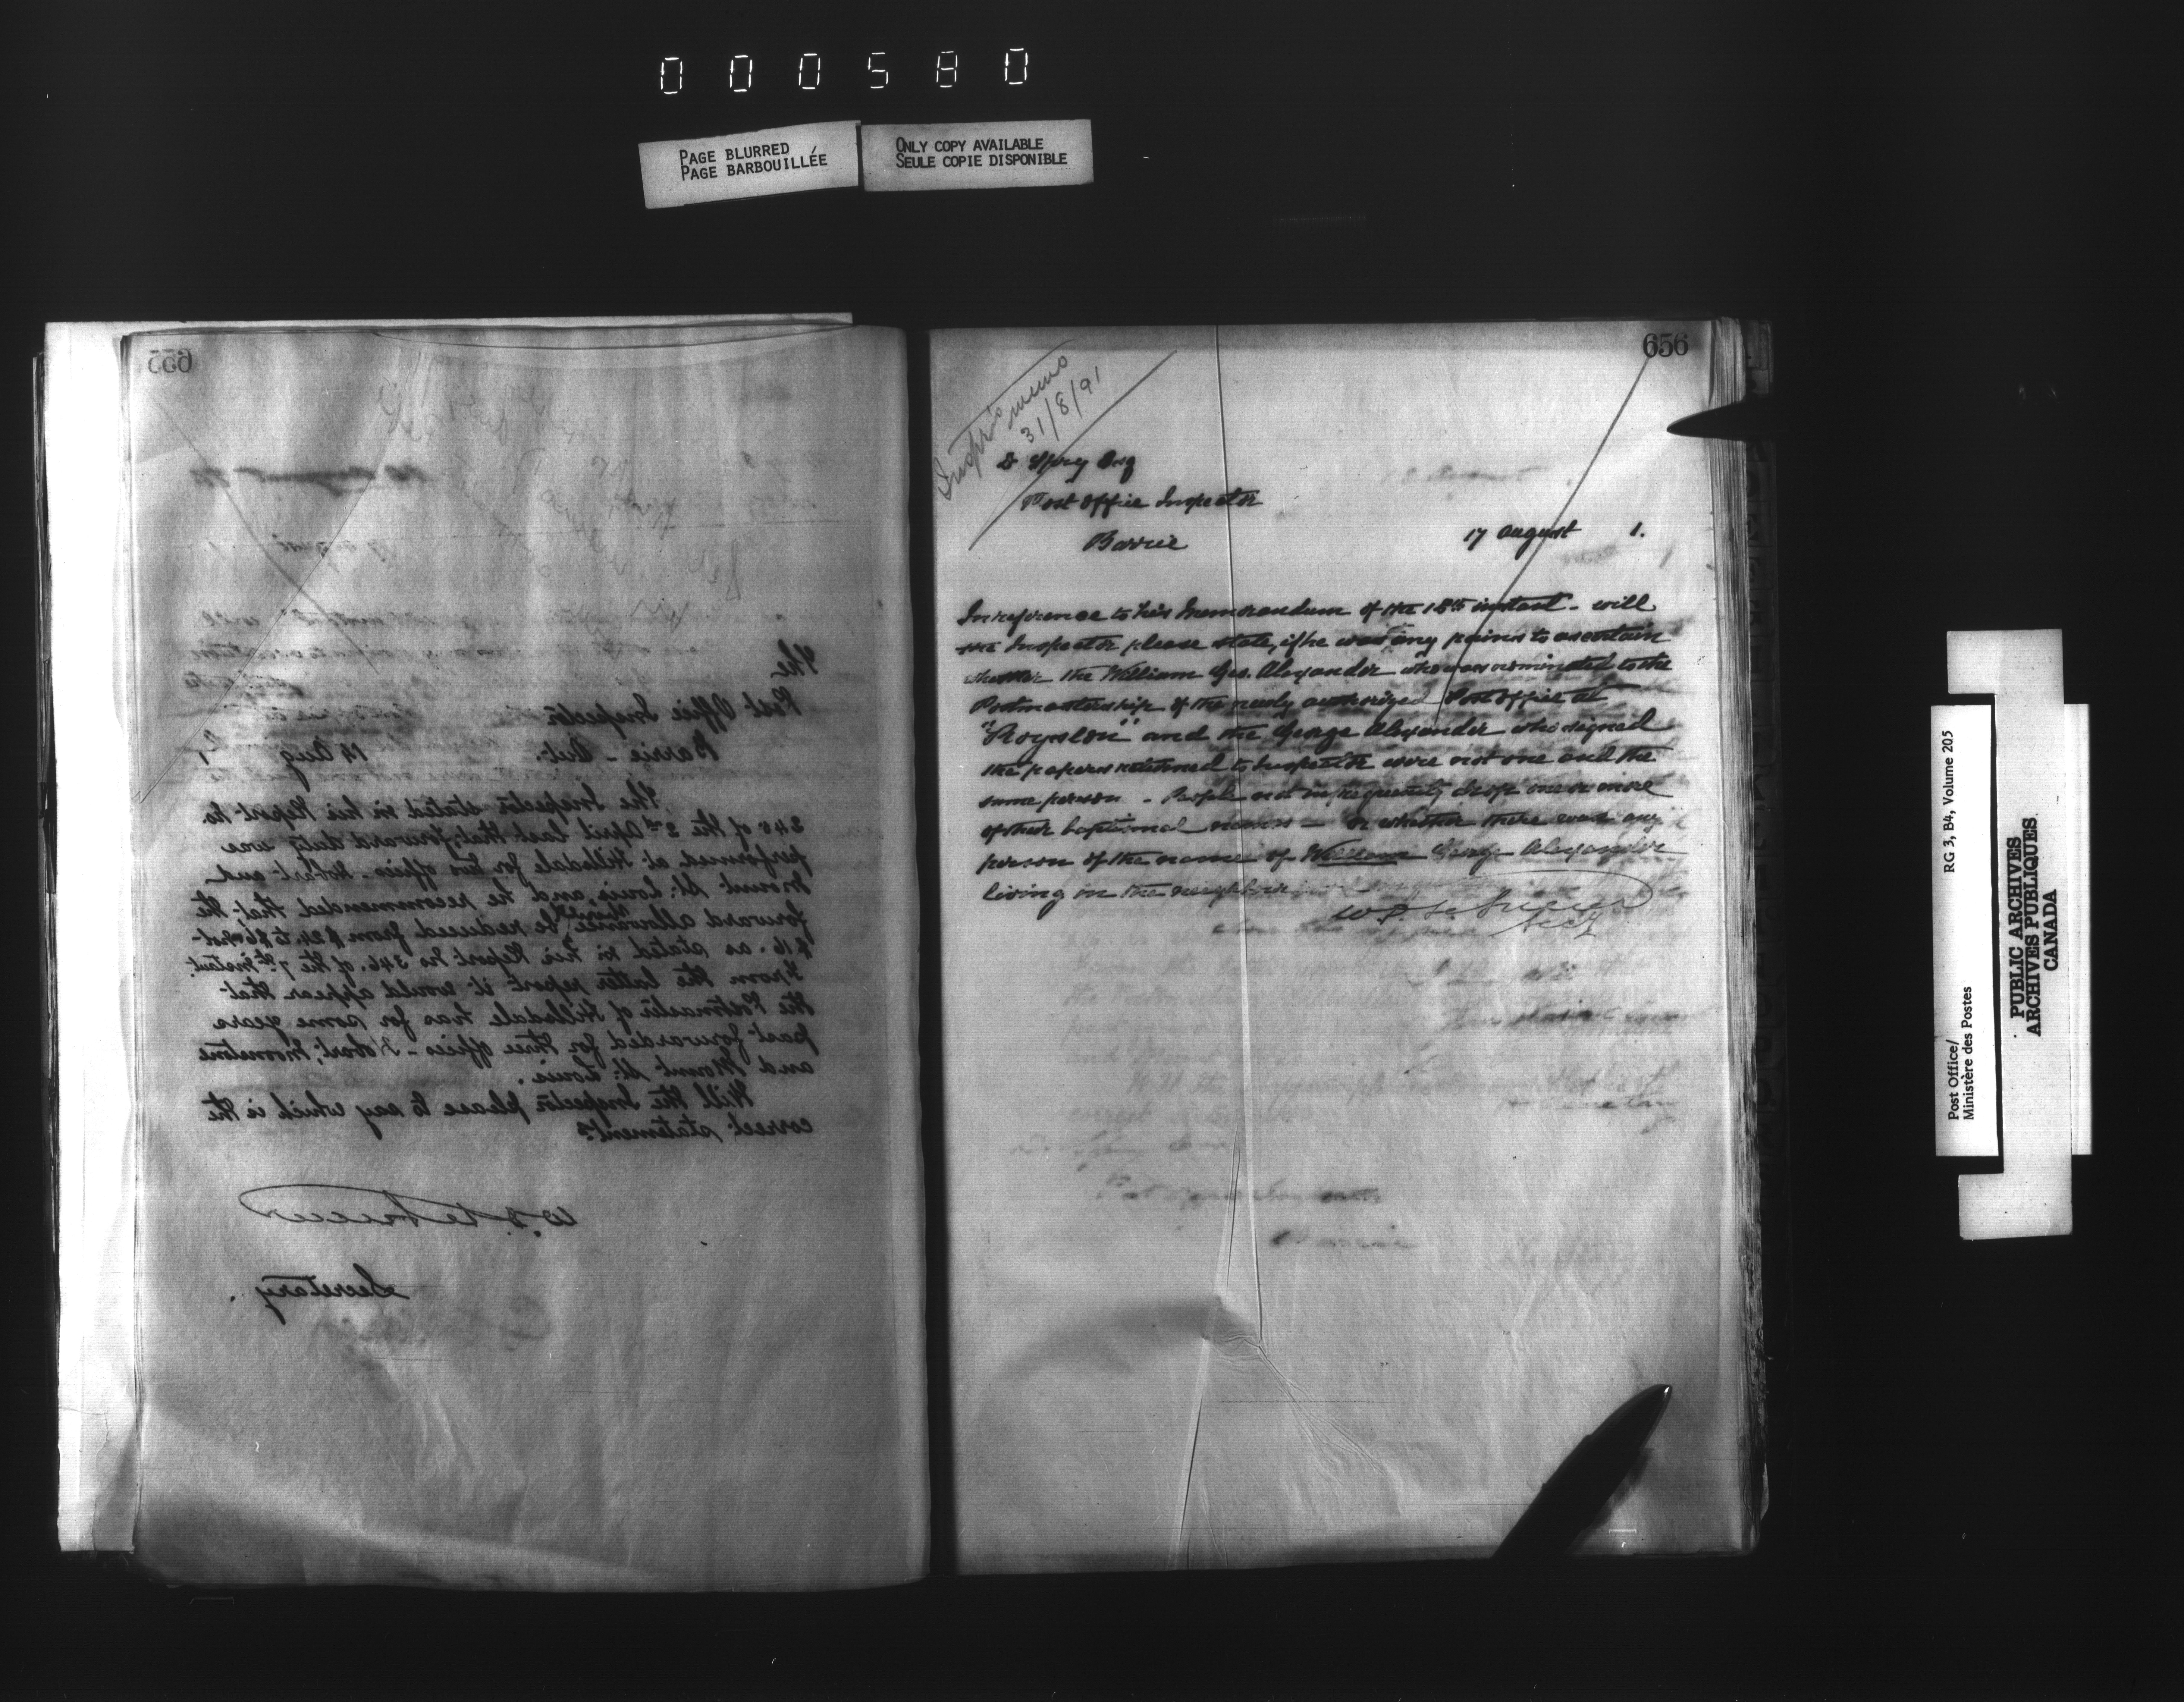 000580
PAGE BLURRED
PAGE BARBOUILLÉE
ONLY COPY AVAILABLE
SEULE COPIE DISPONIBLE
655
The
Post Office Inspector
Barrie - Ont. 14 Aug
The Inspector stated in his Report No
345 of the 2nd April last that forward duty was
performed at Hillsdale for two offices. Hobart and
Mount St. Louis, and he recommended that the
forward allowance be reduced from $24. to $6 not
$16. as stated in his Report No 346. of the 7th instant.
From the latter report it would appear that
the Postmaster of Hillsdale has for some years
past forwarded for three offices - Hobart,
and Mount St. Louis.
Will the Inspector please to say which is the
correct statement?
Secretary.
656
Inspr's memo
31/8/91
Spry Esq
Post Office Inspector
Barrie
17 August 1.
In reference to his memorandum of the instant - will
the Inspector please state, if he any pains to ascertain
whether the William Geo. Alexander who was nominated to the
Postmastership of the newly authorized Post Office at
"Royston" and the George Alexander who signed
the papers returned to Inspector were not one and the
same person - People not infrequently drop one or more
of their baptismal names - or whether there was any
person of the name of William George Alexander
living in the
Secy
Post Office/
Ministère des Postes
RG 3, B4, Volume 205
PUBLIC ARCHIVES
ARCHIVES PUBLIQUES
CANADA